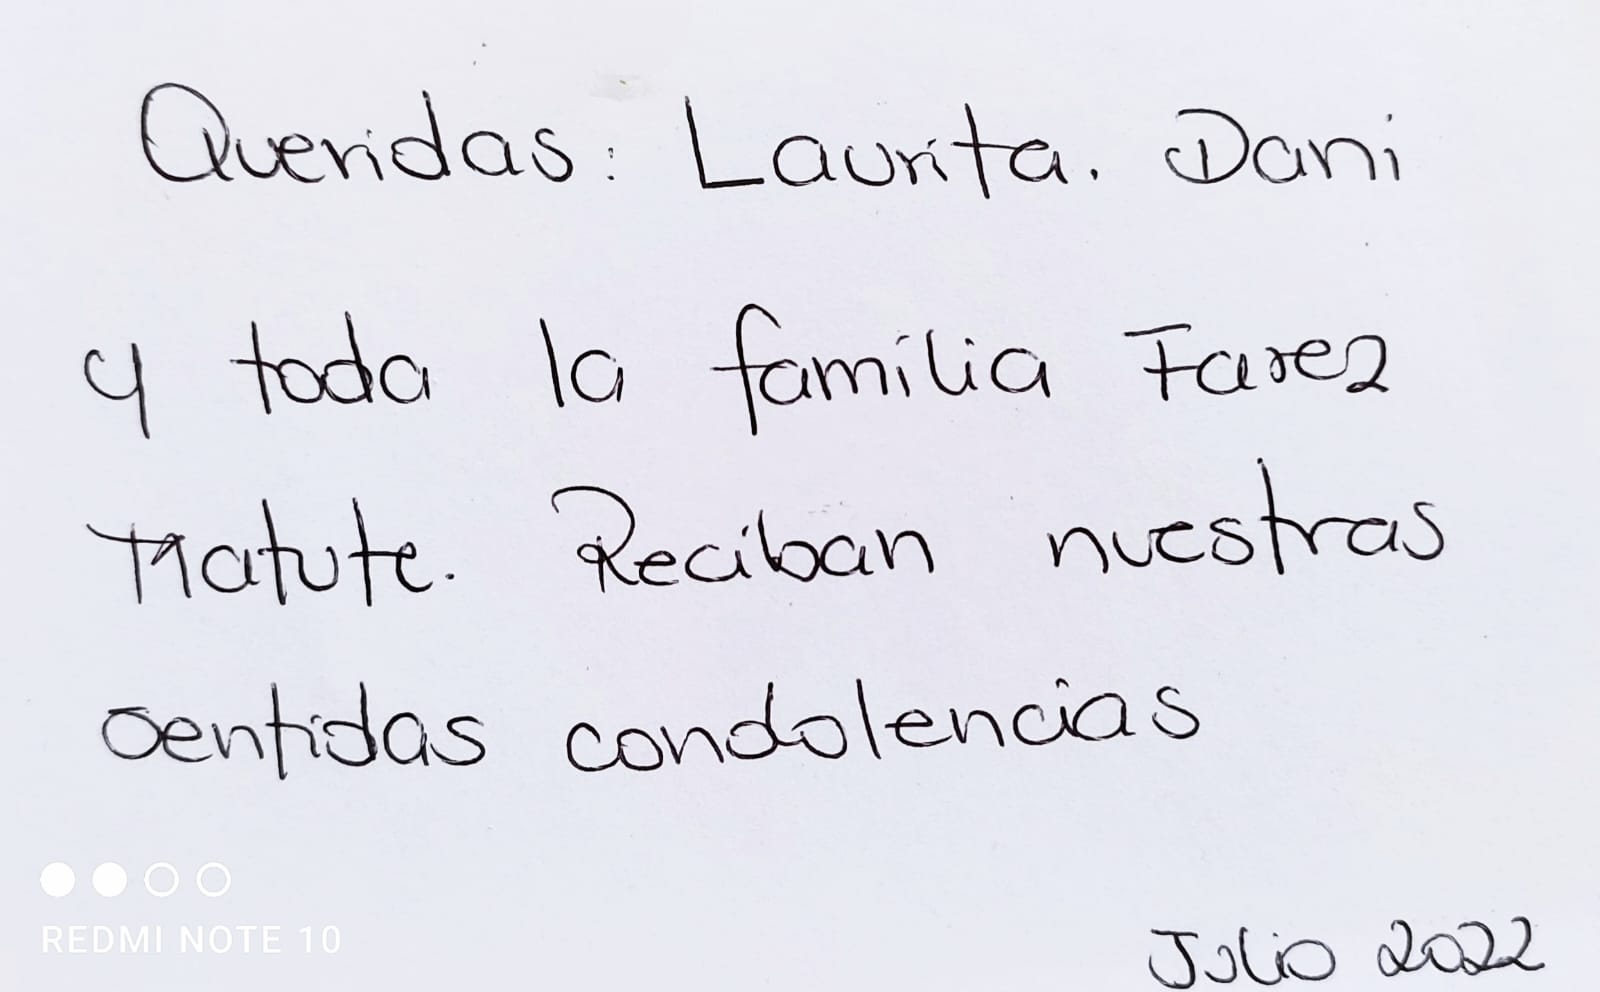 Queridas: Laurita. Dani
y toda la familia Farez
Matute. Reciban nuestras
sentidas condolencias
Julio 2022
REDMI NOTE 10